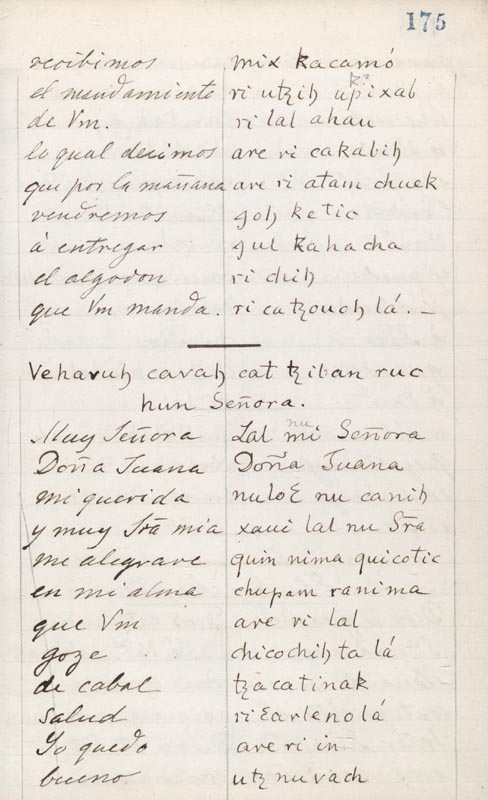 175
recibimos mix kacamó
el mandamiento ri utzih upixab
de Vm. ri lal ahau
lo qual decimos are ri cakabih
que por la mañana are ri atam chuek
vendremos goh ketic
á entregar gul kahacha
el algodon ri chih
que Vm manda. ri catzouoh lá. –
Vehavuh cavah cat tziban ruc
hun Señora.
Muy Señora Lal mi Señora
Doña Juana Doña Juana
mi querida nuloɛ nu canih
y muy Sra mia xaui lal nu Sra
me alegrare quin nima quicotic
en mi alma chupam ranima
que Vm are ri lal
goze chicochih ta lá
de cabal tzacatinak
salud ri ɛarleno lá
Yo quedo are ri in
bueno utz nuvach